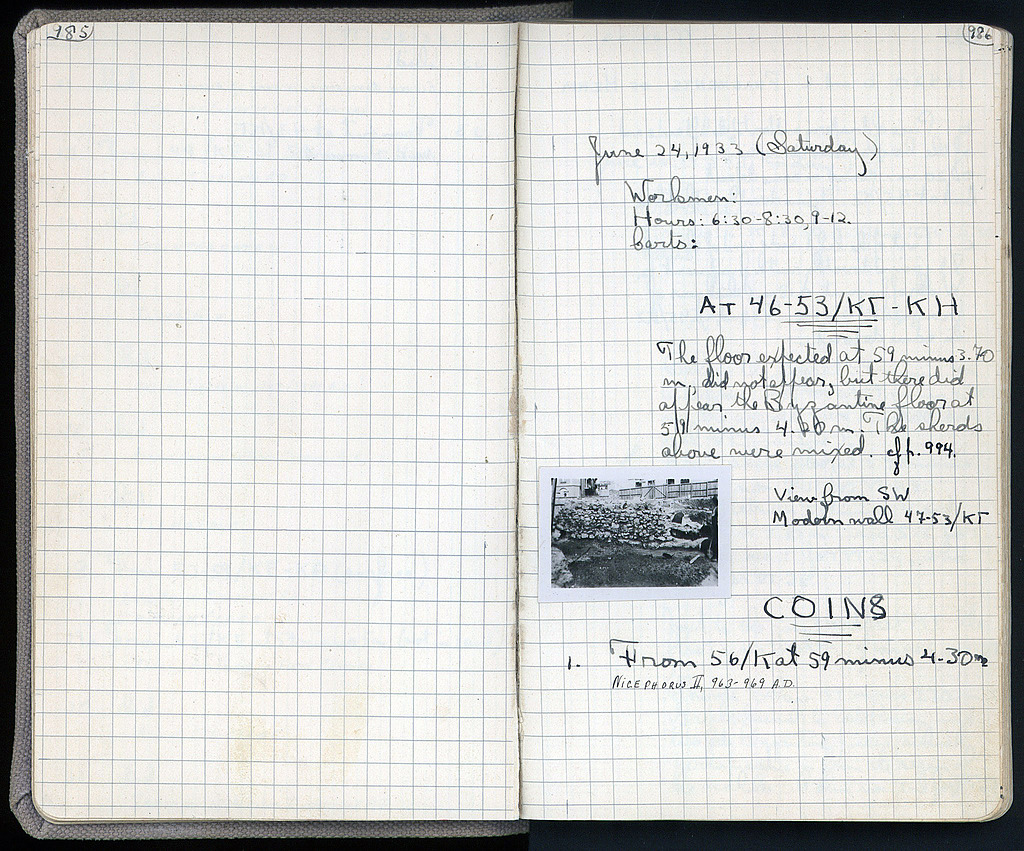 985
986
June 24, 1933 (Saturday)
Workmen:
Hours: 6:30-8:30, 9-12.
Carts:
AT 46-53/KT-KH
The floor expected at 59 minus 3.70
m, did not appear, but there did
appear the Byzantine floor at
59 minus 4.20 m. The sherds
above were mixed. cf p. 994.
View from SW
Modern wall 47-53/KT
COINS
1. From 56/K at 59 minus 4.30m
NICEPHORUS II, 963-969 A.D.